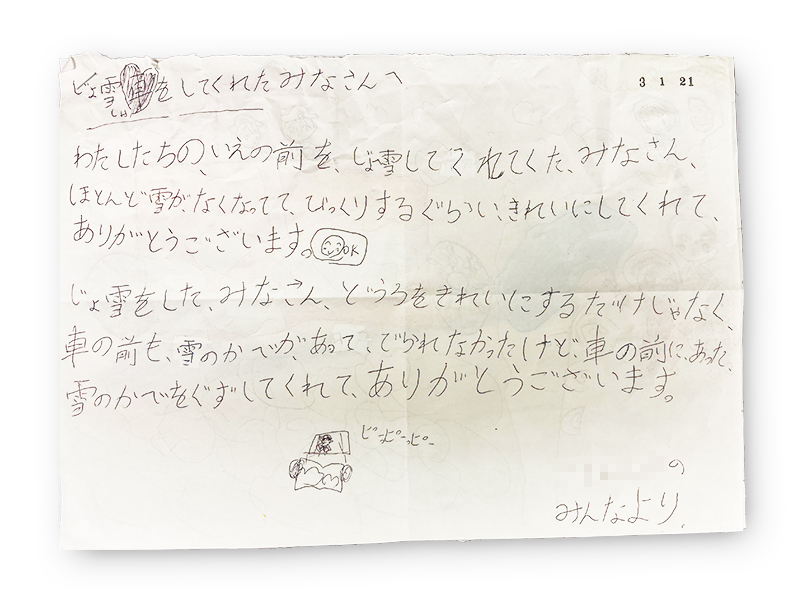 じょ雪をしてくれたみなさんへ
しゃ
3 1 21
わたしたちの、いえの前を、じょ雪してくれてくた、みなさん、
ほとんど雪が、なくなってて、びっくりするぐらい、きれいにしてくれて、
ありがとうございます。OK
じょ雪をした、みなさん、どうろをきれいにするだけじゃなく、
車の前も、雪のかべが、あって、でられなかったけど、車の前に、あった、
雪のかべをくずしてくれて、ありがとうございます。
ピーピーっピー
の
みんなより、